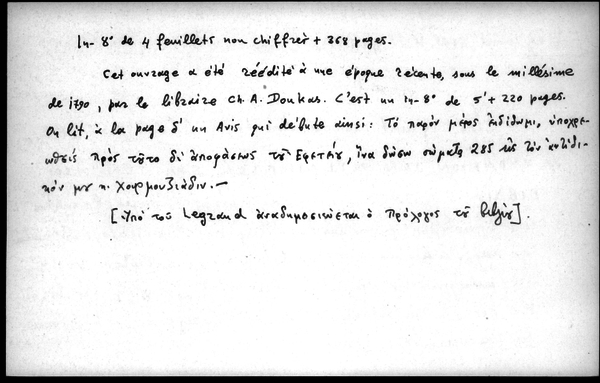 In-8° de 4 feuillets non chiffrés + 368 pages.
Cet ouvrage a été réédité à une époque récente, sous le millésime
de 1790, par le libraire Ch. A. Doukas. C'est un in-8° de 5' + 220 pages.
On lit, à la page δ' un Avis qui débute ainsi: Τό παρόν μέρος ἐκδίδωμι, ὑποχρε-
ωθείς πρός τοῦτο δι' ἀποφάσεως τοῦ Ἐφετείου, ἵνα δώσω σώματα 285 εἰς τόν ἀντίδι-
κόν μου κ. Χουρμουζιάδην.—
[Ὑπό τοῦ Legrand ἀναδημοσιεύεται ὁ Πρόλογος τοῦ βιβλίου].